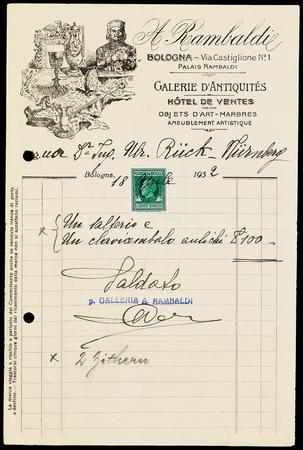 A. Rambaldi
BOLOGNA – Via Castiglione N.º 1
PALAIS RAMBALDI
GALERIE D'ANTIQUITÉS
HÔTEL DE VENTES
OBJETS D'ART - MARBRES
AMEUBLEMENT ARTISTIQUE
Dr Ing. Ulr. Rück. Nürnberg
Bologna, 18 1932
Un salterio e
Un clavicembalo antichi £ 100 –
Saldato
p. GALLERIA A. RAMBALDI
x 2 Zithern
La merce viaggia a rischio e pericolo del Committente anche se venduta franca di porto
a destino. – Trascorsi cinque giorni dal ricevimento della merce non si accettano reclami.